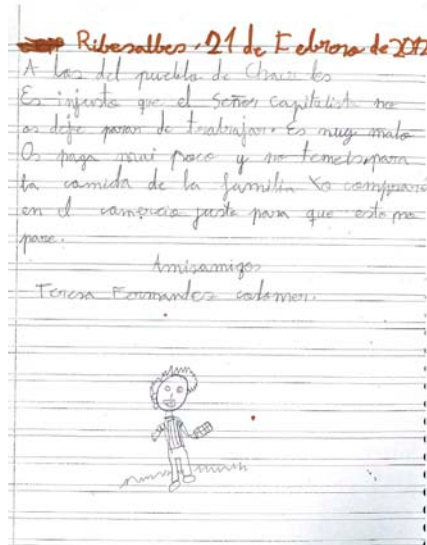 Ribesalbes, 21 de Febrero de 2012
A los del pueblo de
Es injusto que el Señor capitalista no
os deje parar de trabajar. Es muy malo
Os paga mui poco y no teneis para
la comida de la familia Yo compraré
en el comercio justo para que esto no
pare.
Amisamigos
Teresa Fernandez calomer.